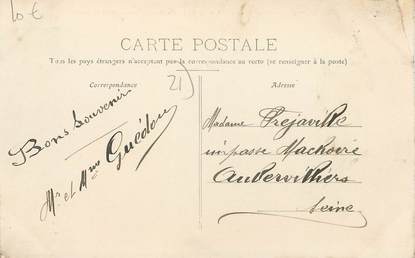 10 €
CARTE POSTALE
Tous les pays étrangers n'acceptent pas la correspondance au verso (se renseigner à la poste)
Correspondance
21)
Bons Souvenirs
Mr et Mme Guédou
Adresse
Madame Préjaville
impasse Machoire
Aubervilliers
Seine